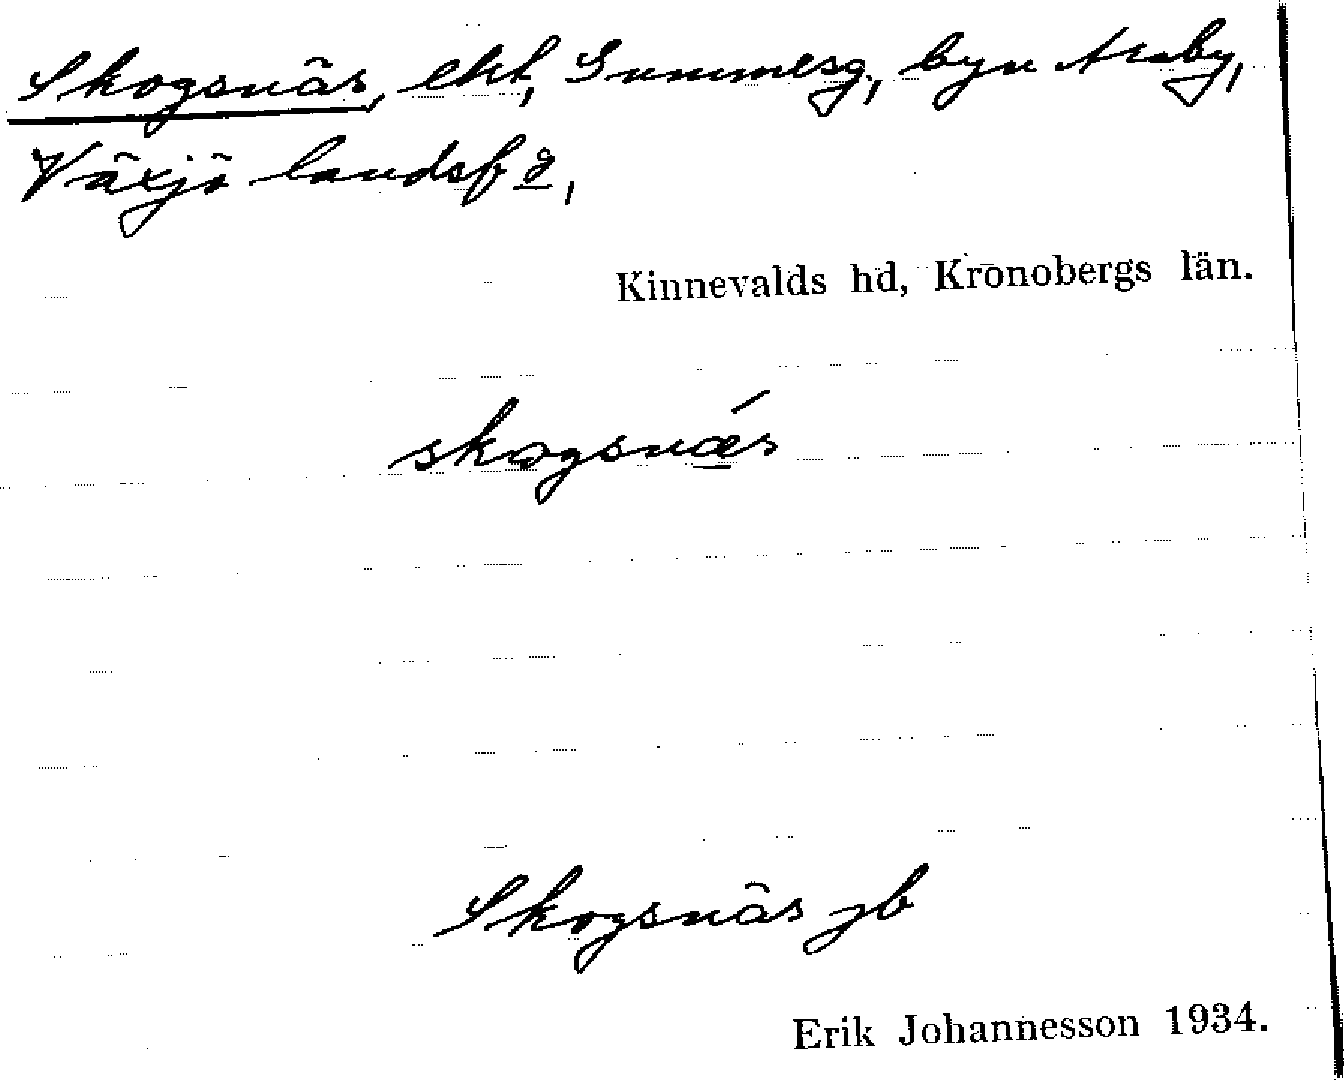 Skogsnäs, ekt, Summesg, byn Araby,
Växjö landsf g,
Kinnevalds hd, Kronobergs län.
skogsnǽs
Skogsnäs jb
Erik Johannesson 1934.